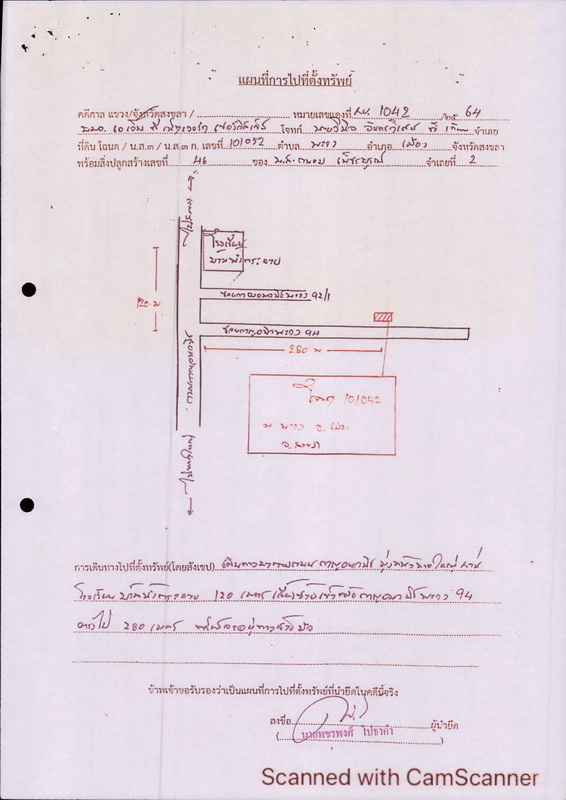 แผนที่การไปที่ตั้งทรัพย์
คดีศาล แขวง/จังหวัดสงขลา / หมายเลขแดงที่ ผบ. 1042 /๒๕ 64
โจทก์ ที่ จำเลย
ที่ดิน โฉนด / น.ส.๓ / น.ส.๓ ก. เลขที่ 101052 ตำบล พะวง อำเภอ เมือง จังหวัดสงขลา
พร้อมสิ่งปลูกสร้างเลขที่ 46 ของ น.ส. จำเลยที่ 2
โรงเรียน
120 ม.
ซอยกาญจนวนิช 92/1
ซอยกาญจนวนิช 94
280 ม
โฉนด 101052
ต. พะวง อ. เมือง
จ. สงขลา
การเดินทางไปที่ตั้งทรัพย์(โดยสังเขป) เดินทางมาตามถนน กาญจนวนิช มุ่งหน้าหาดใหญ่ ผ่าน
โรงเรียน 120 เมตร เลี้ยวซ้ายเข้าซอยกาญจนวนิช 94
ตรงไป 280 เมตร ทรัพย์อยู่ทางซ้ายมือ
ข้าพเจ้าขอรับรองว่าเป็นแผนที่การไปที่ตั้งทรัพย์ที่นำยึดในคดีนี้จริง
ลงชื่อ ผู้นำยึด
(นายพชรพงศ์ ไปธาคำ)
Scanned with CamScanner